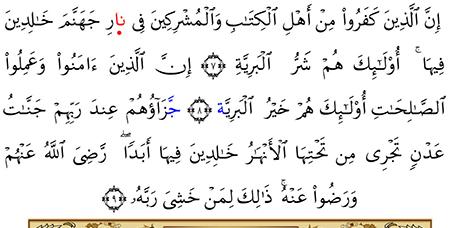 إِنَّ ٱلَّذِينَ كَفَرُواْ مِنْ أَهْلِ ٱلْكِتَـٰبِ وَٱلْمُشْرِكِينَ فِى نَارِ جَهَنَّمَ خَـٰلِدِينَ
فِيهَآ ۚ أُوْلَـٰٓئِكَ هُمْ شَرُّ ٱلْبَرِيَّةِ ۝٧ إِنَّ ٱلَّذِينَ ءَامَنُواْ وَعَمِلُواْ
ٱلصَّـٰلِحَـٰتِ أُوْلَـٰٓئِكَ هُمْ خَيْرُ ٱلْبَرِيَّةِ ۝٨ جَزَآؤُهُمْ عِندَ رَبِّهِمْ جَنَّـٰتُ
عَدْنٍ تَجْرِى مِن تَحْتِهَا ٱلْأَنْهَـٰرُ خَـٰلِدِينَ فِيهَآ أَبَدًا ۖ رَّضِىَ ٱللَّهُ عَنْهُمْ
وَرَضُواْ عَنْهُ ۚ ذَٰلِكَ لِمَنْ خَشِىَ رَبَّهُۥ ۝٩